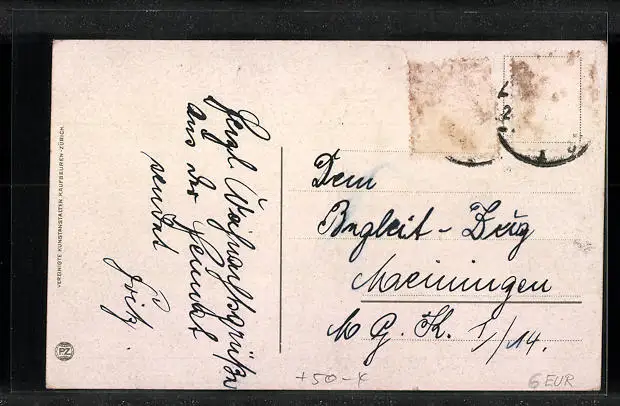 Herzl. Weihnachtsgrüße
aus der Heimat
sendet
Fritz.
Dem
Begleit-Zug
Meiningen
M G. K. I/14.
VEREINIGTE KUNSTANSTALTEN, KAUFBEUREN-ZÜRICH
PZ
+50-
6 EUR